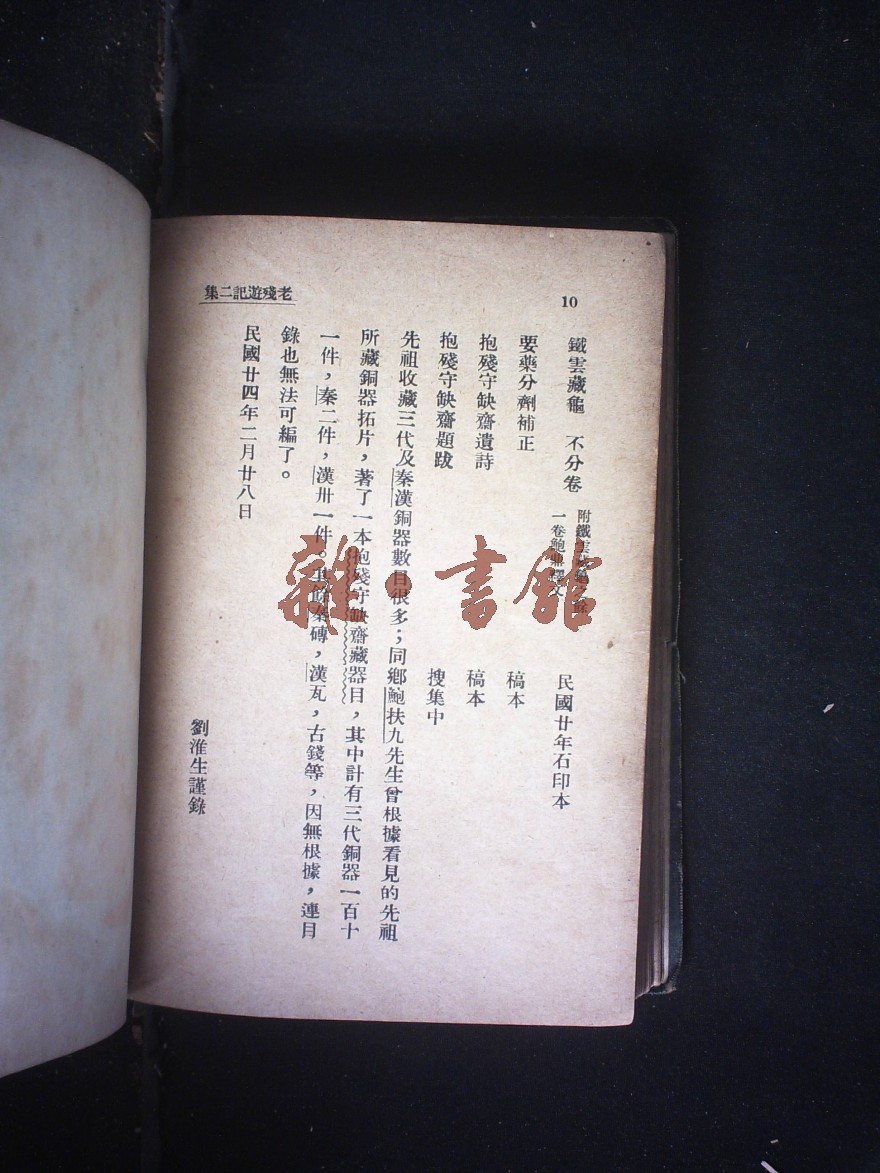 10
老殘遊記二集
鐵雲藏龜 不分卷 附鐵雲藏龜之餘
一卷鮑鼎釋文 民國廿年石印本
要藥分劑補正 稿本
抱殘守缺齋遺詩 稿本
抱殘守缺齋題跋 搜集中
先祖收藏三代及秦漢銅器數目很多；同鄉鮑扶九先生曾根據看見的先祖
所藏銅器拓片，著了一本抱殘守缺齋藏器目，其中計有三代銅器一百十
一件，秦二件，漢卅一件。其餘秦磚，漢瓦，古錢等，因無根據，連目
錄也無法可編了。
民國廿四年二月廿八日
劉淮生謹錄
雜·書館